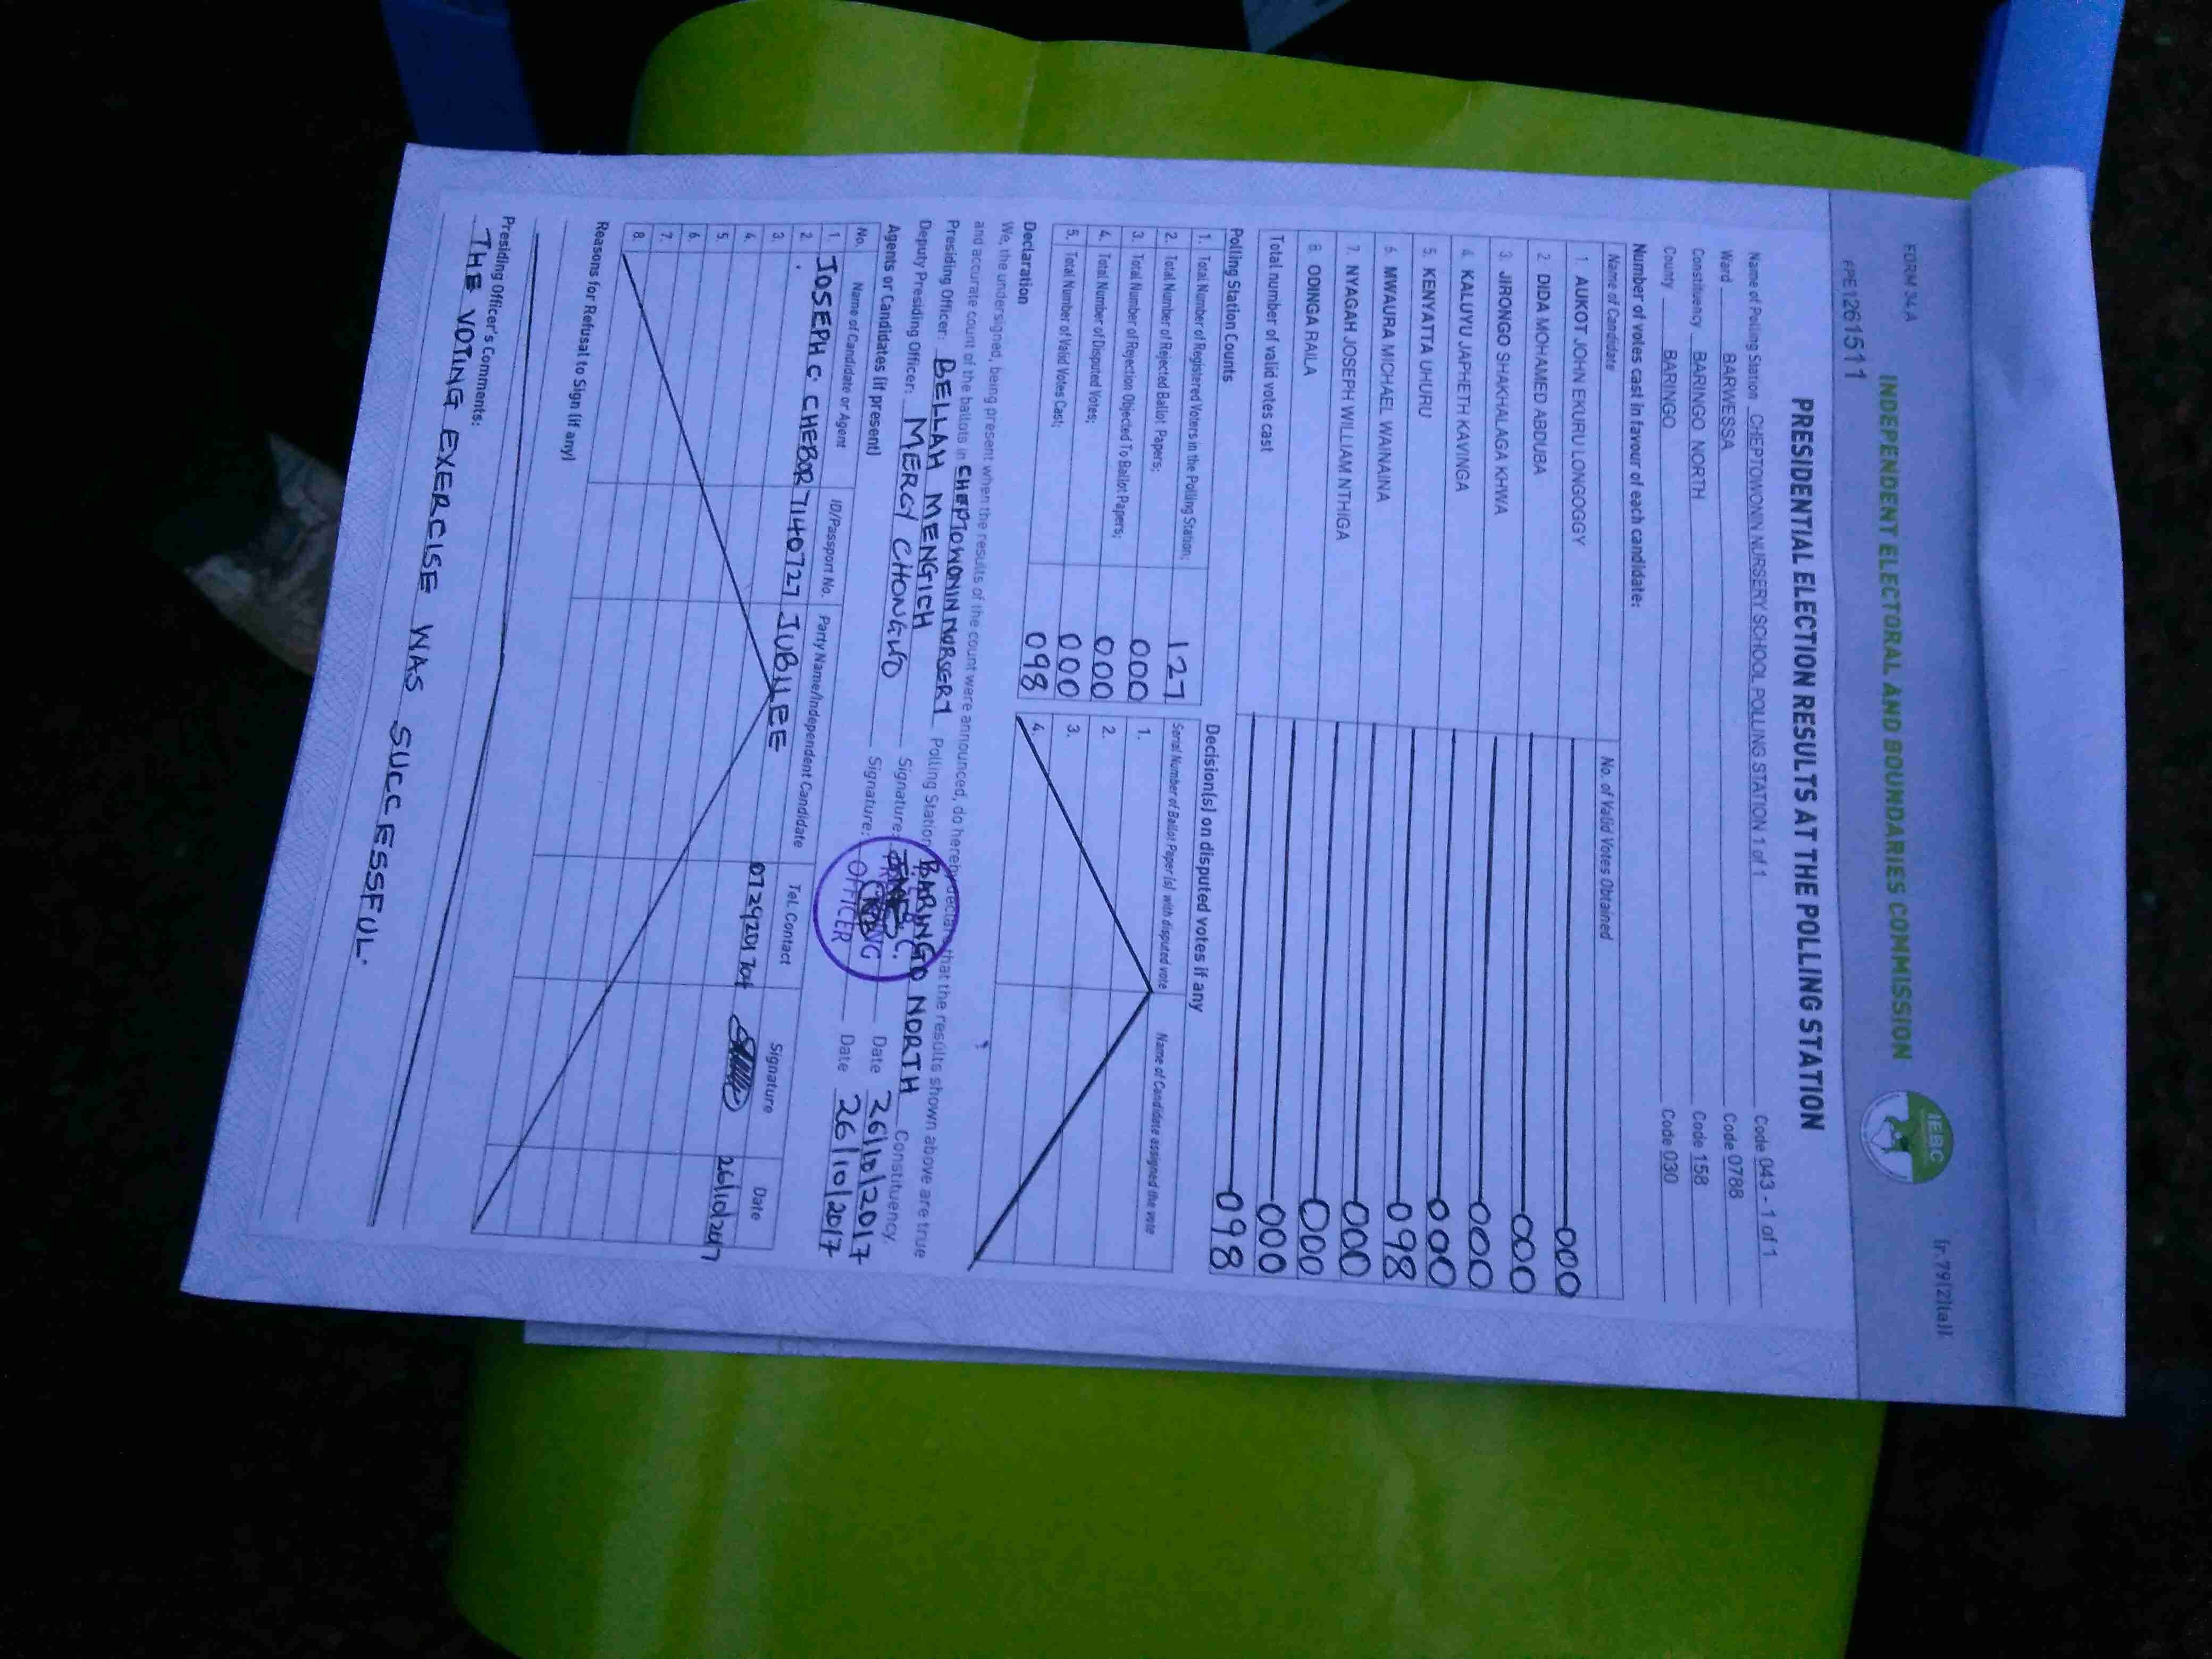 FORM 34 A
[r.79(2)(a)]
INDEPENDENT ELECTORAL AND BOUNDARIES COMMISSION
IEBC
PPE1261511
PRESIDENTIAL ELECTION RESULTS AT THE POLLING STATION
Name of Polling Station CHEPTOWONIN NURSERY SCHOOL POLLING STATION 1 of 1 Code 043 - 1 of 1
Ward BARWESSA Code 0788
Constituency BARINGO NORTH Code 158
County BARINGO Code 030
Number of votes cast in favour of each candidate:
Name of Candidate No. of Valid Votes Obtained
1. AUKOT JOHN EKURU LONGOGGY 000
2. DIDA MOHAMED ABDUBA 000
3. JIRONGO SHAKHALAGA KHWA 000
4. KALUYU JAPHETH KAVINGA 000
5. KENYATTA UHURU 098
6. MWAURA MICHAEL WAINAINA 000
7. NYAGAH JOSEPH WILLIAM NTHIGA 000
8. ODINGA RAILA 000
Total number of valid votes cast 098
Polling Station Counts
1. Total Number of Registered Voters in the Polling Station; 127
2. Total Number of Rejected Ballot Papers; 000
3. Total Number of Rejection Objected To Ballot Papers; 000
4. Total Number of Disputed Votes; 000
5. Total Number of Valid Votes Cast; 098
Decision(s) on disputed votes if any
Serial Number of Ballot Paper (s) with disputed vote Name of Candidate assigned the vote
1.
2.
3.
4.
Declaration
We, the undersigned, being present when the results of the count were announced, do hereby declare that the results shown above are true
and accurate count of the ballots in CHEPTOWONIN NURSERY Polling Station BARINGO NORTH Constituency.
Presiding Officer: BELLAH MENGICH Signature: Date 26/10/2017
Deputy Presiding Officer: MERCY CHONGWO Signature: Date 26/10/2017
OFFICER
Agents or Candidates (if present)
No. Name of Candidate or Agent ID/Passport No. Party Name/Independent Candidate Tel. Contact Signature Date
1. JOSEPH C. CHEBOR 7140727 JUBILEE 0729201704 26/10/2017
2.
3.
4.
5.
6.
7.
8.
Reasons for Refusal to Sign (if any)
Presiding Officer's Comments:
THE VOTING EXERCISE WAS SUCCESSFUL.